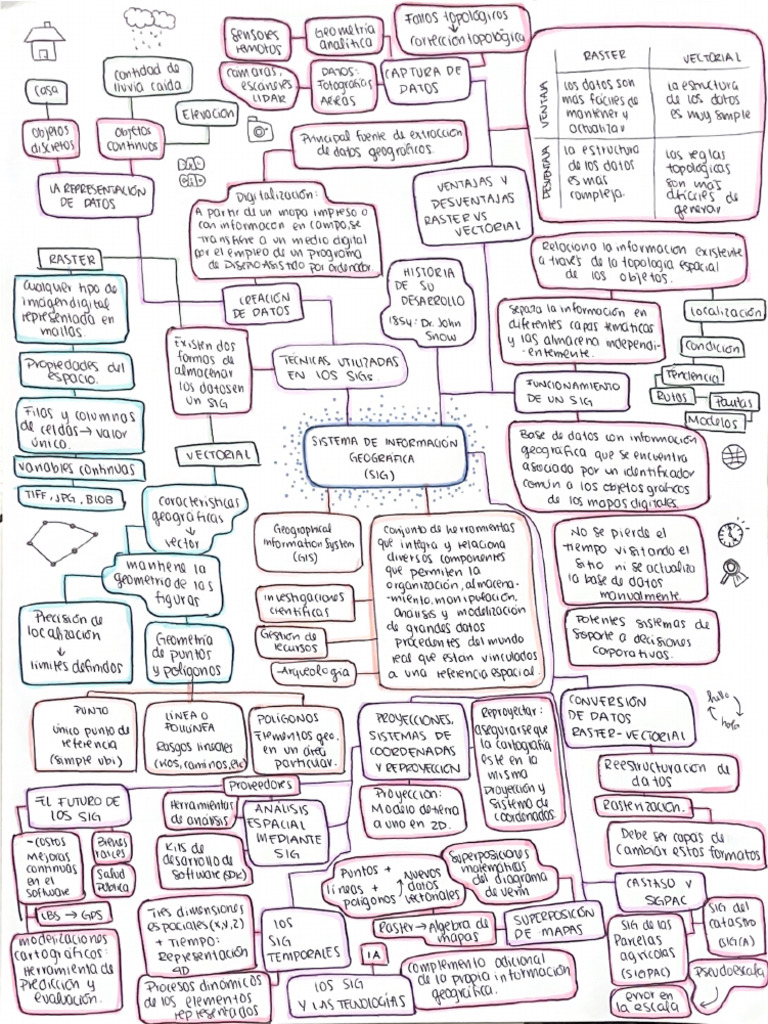 Sensores
remotos
Geometría
analítica
Fallos topológicos
corrección topológica
Cámaras,
escáneres
LIDAR
DATOS:
Fotografías
Aéreas
CAPTURA DE
DATOS
RASTER
VECTORIAL
VENTAJA
Los datos son
más fáciles de
mantener y
actualizar
La estructura
de los datos
es muy simple
DESVENTAJA
La estructura
de los datos
es más
compleja.
Las reglas
topológicas
son más
difíciles de
generar
Casa
Cantidad de
lluvia caída
Elevación
Objetos
discretos
Objetos
continuos
LA REPRESENTACIÓN
DE DATOS
Principal fuente de extracción
de datos geográficos.
Digitalización:
A partir de un mapa impreso o
con información en campo, se
transfiere a un medio digital
por el empleo de un programa
de Diseño Asistido por ordenador
VENTAJAS Y
DESVENTAJAS
RASTER VS
VECTORIAL
Relaciona la información existente
a través de la topología espacial
de los objetos.
RASTER
Cualquier tipo de
imagen digital
representada en
mallas.
Propiedades del
espacio.
Filas y columnas
de celdas → valor
único.
Variables continuas
TIFF, JPG, BLOB
CREACIÓN
DE DATOS
Existen dos
formas de
almacenar
los datos en
un SIG
TECNICAS UTILIZADAS
EN LOS SIGs
HISTORIA
DE SU
DESARROLLO
1854: Dr. John
Snow
Separa la información en
diferentes capas temáticas
y las almacena independi-
entemente.
Localización
Condición
Tendencia
Rutas
Pautas
Modelos
FUNCIONAMIENTO
DE UN SIG
SISTEMA DE INFORMACIÓN
GEOGRÁFICA
(SIG)
Base de datos con información
geográfica que se encuentra
asociada por un identificador
común a los objetos gráficos
de los mapas digitales.
VECTORIAL
Características
geográficas
↓
vector
mantiene la
geometría de las
figuras
Precisión de
localización
↓
límites definidos
Geometría
de puntos
y polígonos
Geographical
Information System
(GIS)
Investigaciones
científicas
Gestión de
recursos
Arqueología
Conjunto de herramientas
que integra y relaciona
diversos componentes
que permiten la
organización, almacena-
-miento, manipulación,
análisis y modelización
de grandes datos
procedentes del mundo
real que están vinculados
a una referencia espacial.
No se pierde el
tiempo visitando el
sitio ni se actualiza
la base de datos
manualmente.
Potentes sistemas de
soporte a decisiones
corporativas.
PUNTO
único punto de
referencia
(simple ubi)
LÍNEA O
POLILÍNEA
Rasgos lineales
(ríos, caminos, etc)
POLÍGONOS
Elementos geo.
en un área
particular.
PROYECCIONES,
SISTEMAS DE
COORDENADAS
Y REPROYECCIÓN
Reproyectar:
asegurarse que
la cartografía
esté en la
misma
proyección y
sistema de
coordenadas.
Proyección:
Modelo de tierra
a uno en 2D.
CONVERSIÓN
DE DATOS
RASTER-VECTORIAL
Reestructuración de
datos
Rasterización.
Debe ser capas de
cambiar estos formatos
EL FUTURO DE
LOS SIG
-costos
mejoras
continuas
en el
software
Bienes
raíces
Salud
pública
LBS → GPS
modelizaciones
cartográficas:
Herramienta de
predicción y
evaluación.
Proveedores
Herramientas
de análisis
ANÁLISIS
ESPACIAL
MEDIANTE
SIG
Kits de
desarrollo de
software (SDK)
Puntos +
líneas +
polígonos
↑ nuevos
datos
vectoriales
Superposiciones
matemáticas
del diagrama
de venn
Raster → Álgebra de
mapas
SUPERPOSICIÓN
DE MAPAS
CASTASO Y
SIGPAC
SIG de las
Parcelas
agrícolas
(SIGPAC)
SIG del
catastro
(SIGCA)
Pseudoescala
error en
la escala
Tres dimensiones
espaciales (x,y,z)
+ Tiempo:
Representación
4D
Procesos dinámicos
de los elementos
representados
LOS
SIG
TEMPORALES
IA
LOS SIG
Y LAS TECNOLOGÍAS
complemento adicional
de la propia información
geográfica.